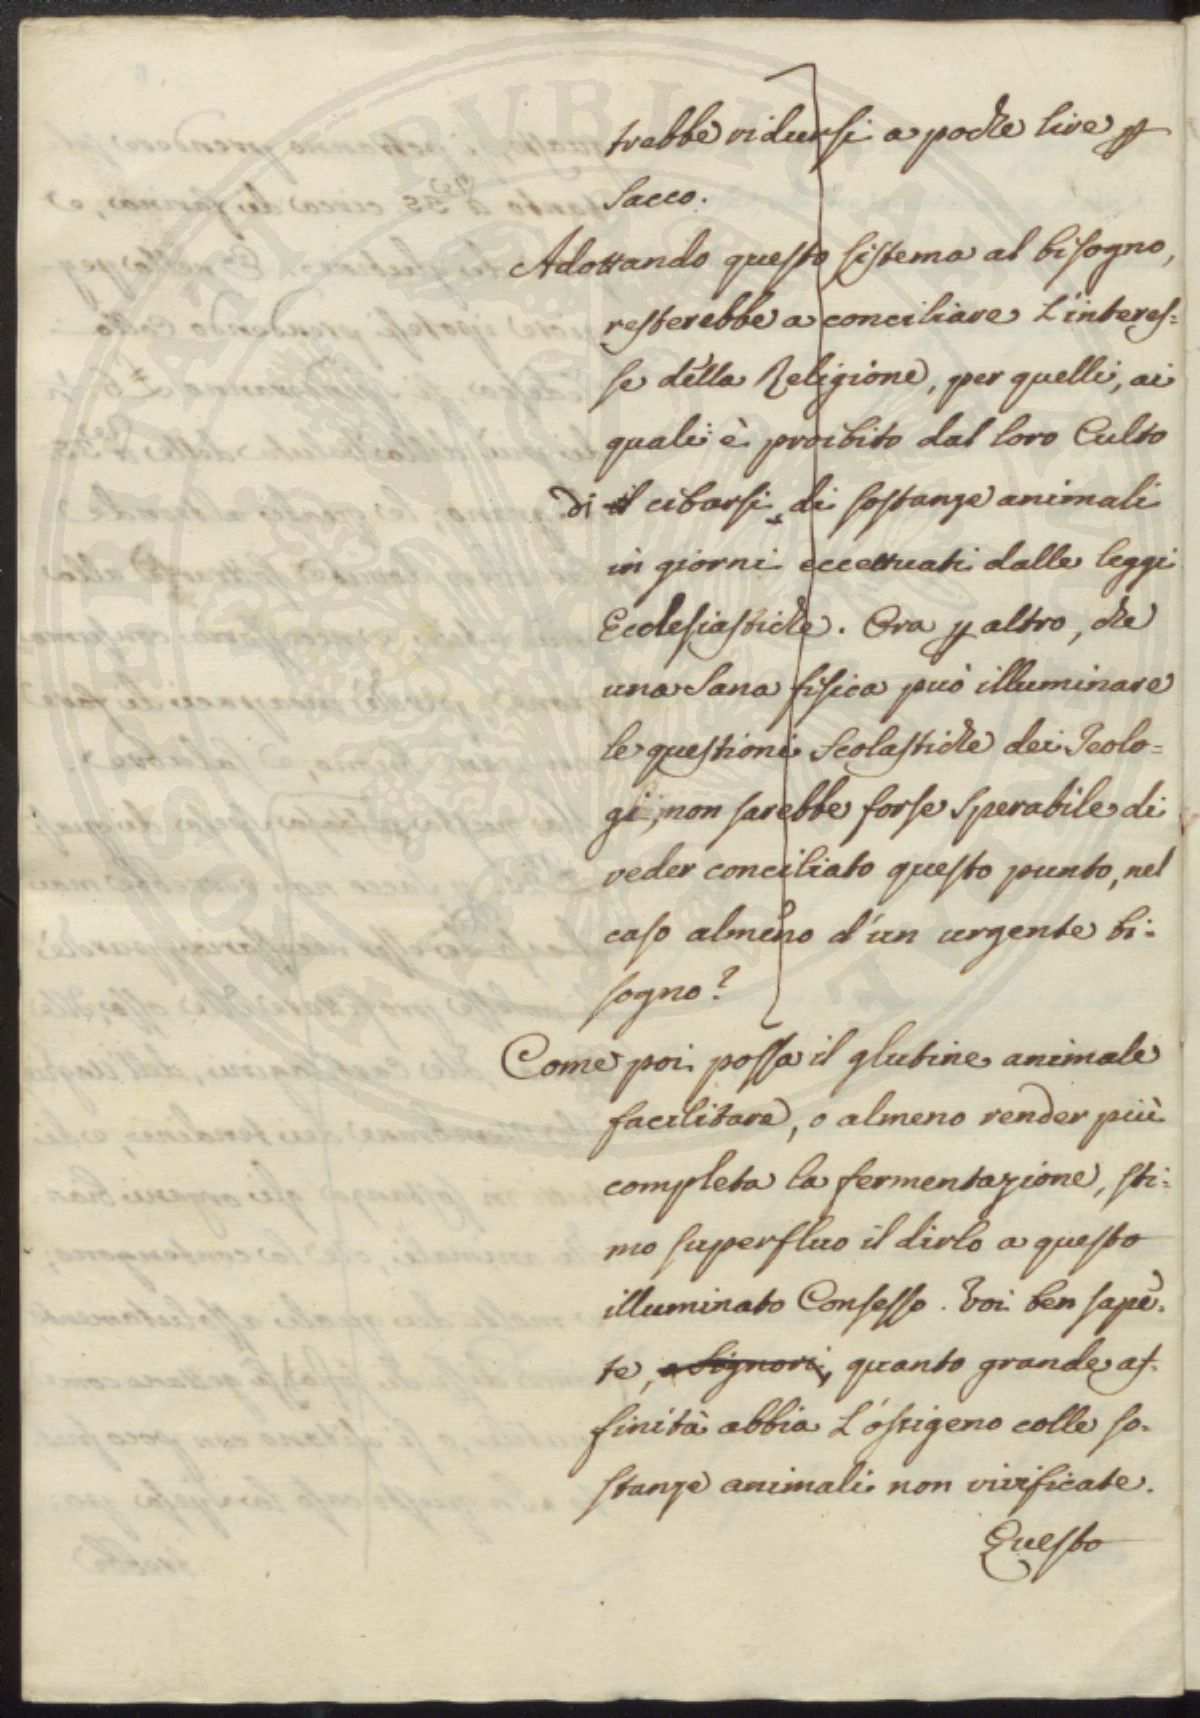 trebbe ridursi a poche lire p
sacco.
Adottando questo sistema al bisogno,
resterebbe a conciliare L'interes=
se della Religione, per quelli, ai
quali è proibito dal loro Culto
di il cibarsi di sostanze animali
in giorni eccettuati dalle leggi
Ecclesiastiche. Ora p altro, che
una Sana fisica può illuminare
le questioni Scolastiche dei Teolo=
gi, non sarebbe forse sperabile di
veder conciliato questo punto, nel
caso almeno d'un urgente bi=
sogno?
Come poi possa il glutine animale
facilitare, o almeno render più
completa la fermentazione, sti=
mo superfluo il dirlo a questo
illuminato Consesso. Voi ben sape=
te, o Signori, quanto grande af=
finità abbia L'ossigeno colle so=
stanze animali non vivificate.
Questo